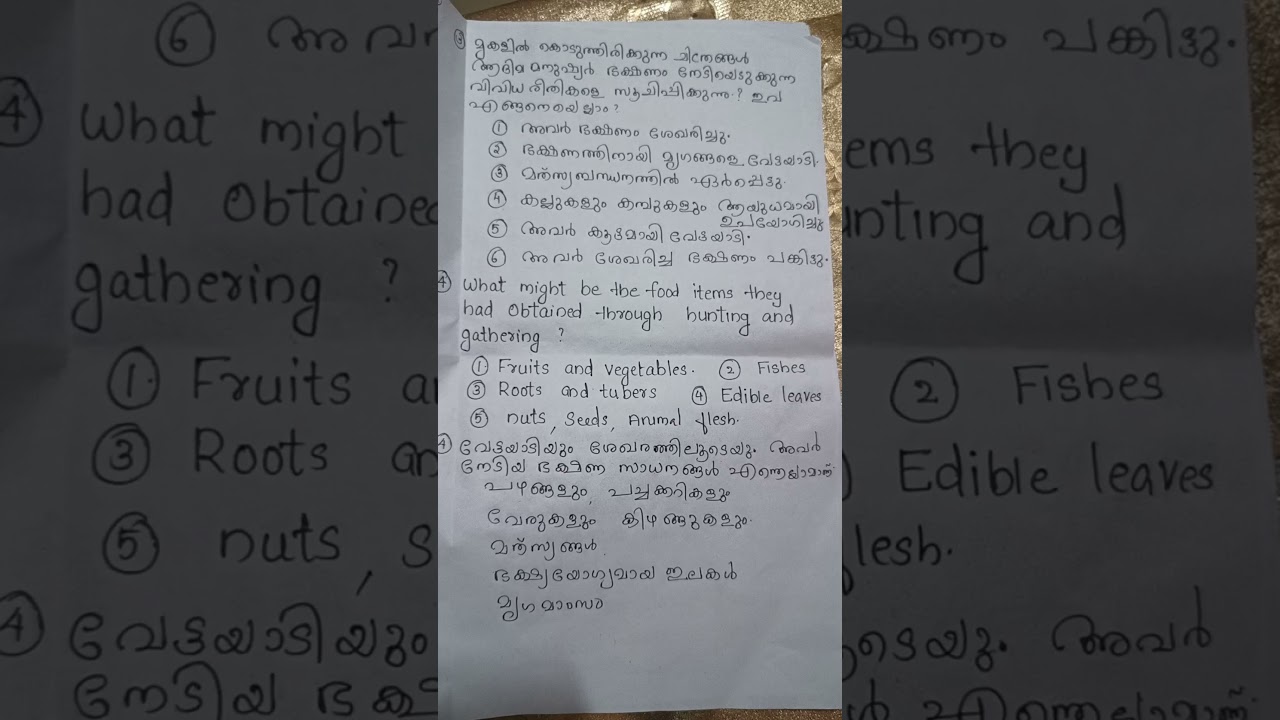 ③ മുകളിൽ കൊടുത്തിരിക്കുന്ന ചിത്രങ്ങൾ
ആദിമ മനുഷ്യർ ഭക്ഷണം നേടിയെടുക്കുന്ന
വിവിധ രീതികളെ സൂചിപ്പിക്കുന്നു.? ഇവ
എങ്ങനെയെല്ലാം?
① അവർ ഭക്ഷണം ശേഖരിച്ചു.
② ഭക്ഷണത്തിനായി മൃഗങ്ങളെ വേട്ടയാടി.
③ മത്സ്യബന്ധനത്തിൽ ഏർപ്പെട്ടു.
④ കല്ലുകളും കമ്പുകളും ആയുധമായി
ഉപയോഗിച്ചു
⑤ അവർ കൂട്ടമായി വേട്ടയാടി.
⑥ അവർ ശേഖരിച്ച ഭക്ഷണം പങ്കിട്ടു.
④ What might be the food items they
had obtained through hunting and
gathering ?
① Fruits and vegetables. ② Fishes
③ Roots and tubers ④ Edible leaves
⑤ nuts, Seeds, Animal flesh.
④ വേട്ടയാടിയും ശേഖരത്തിലൂടെയും അവർ
നേടിയ ഭക്ഷണ സാധനങ്ങൾ എന്തെല്ലാമാണ്
പഴങ്ങളും, പച്ചക്കറികളും
വേരുകളും കിഴങ്ങുകളും.
മത്സ്യങ്ങൾ.
ഭക്ഷ്യയോഗ്യമായ ഇലകൾ
മൃഗമാംസം